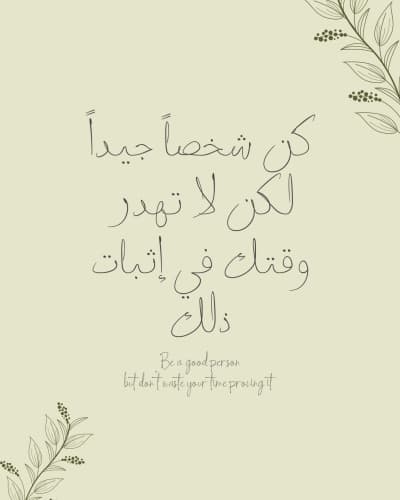 كن شخصاً جيداً
لكن لا تهدر
وقتك في إثبات
ذلك
Be a good person
but don't waste your time proving it